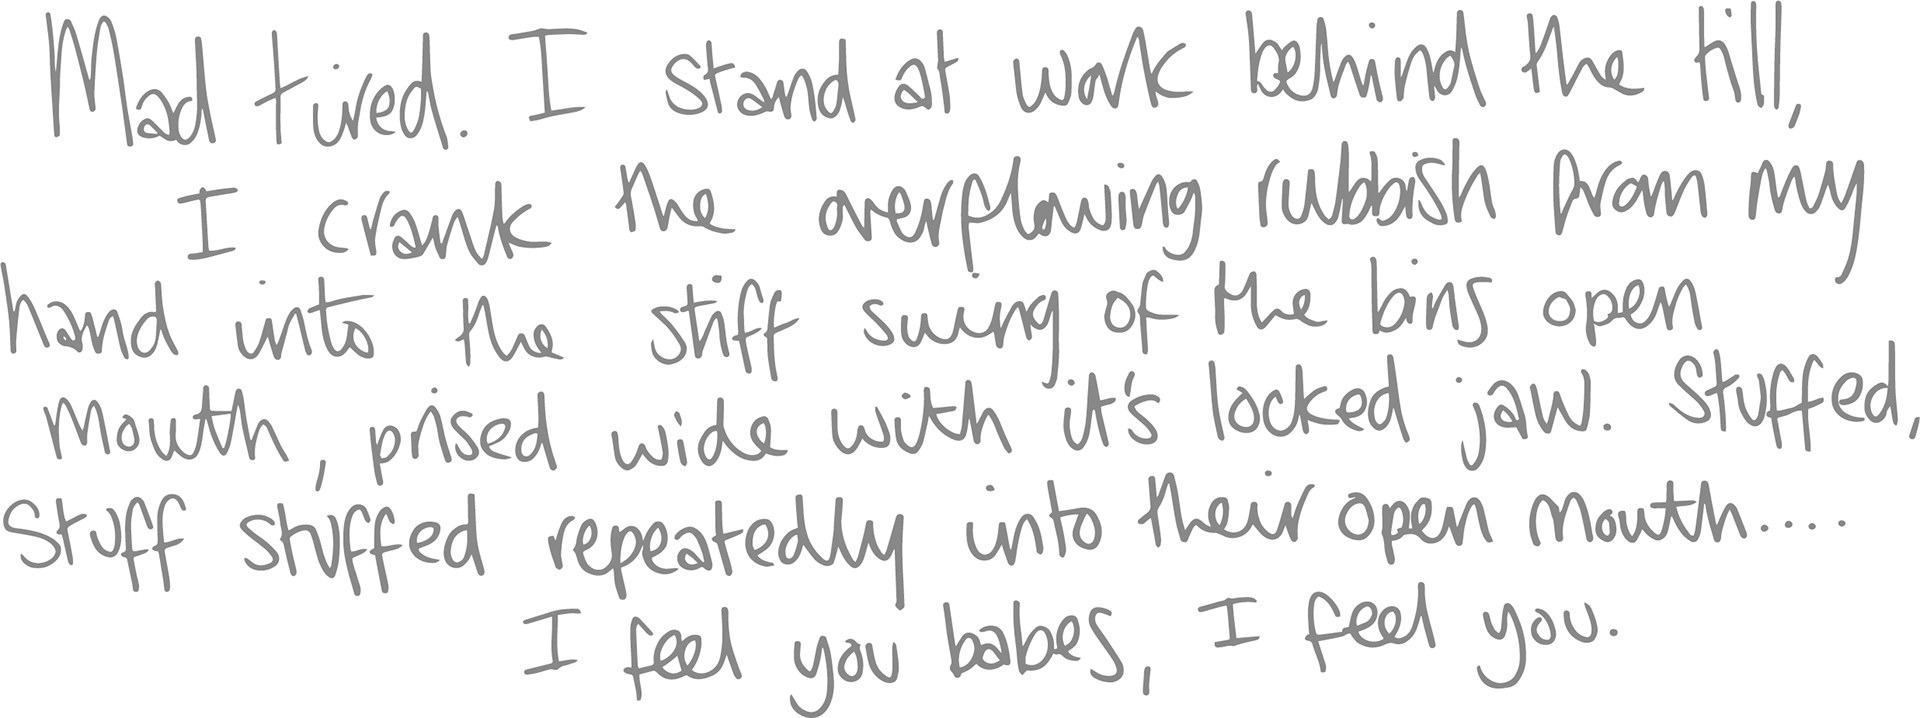 Mad tired. I stand at work behind the till,
I crank the overflowing rubbish from my
hand into the stiff swing of the bins open
mouth, prised wide with it's locked jaw. Stuffed,
Stuff stuffed repeatedly into their open mouth....
I feel you babes, I feel you.